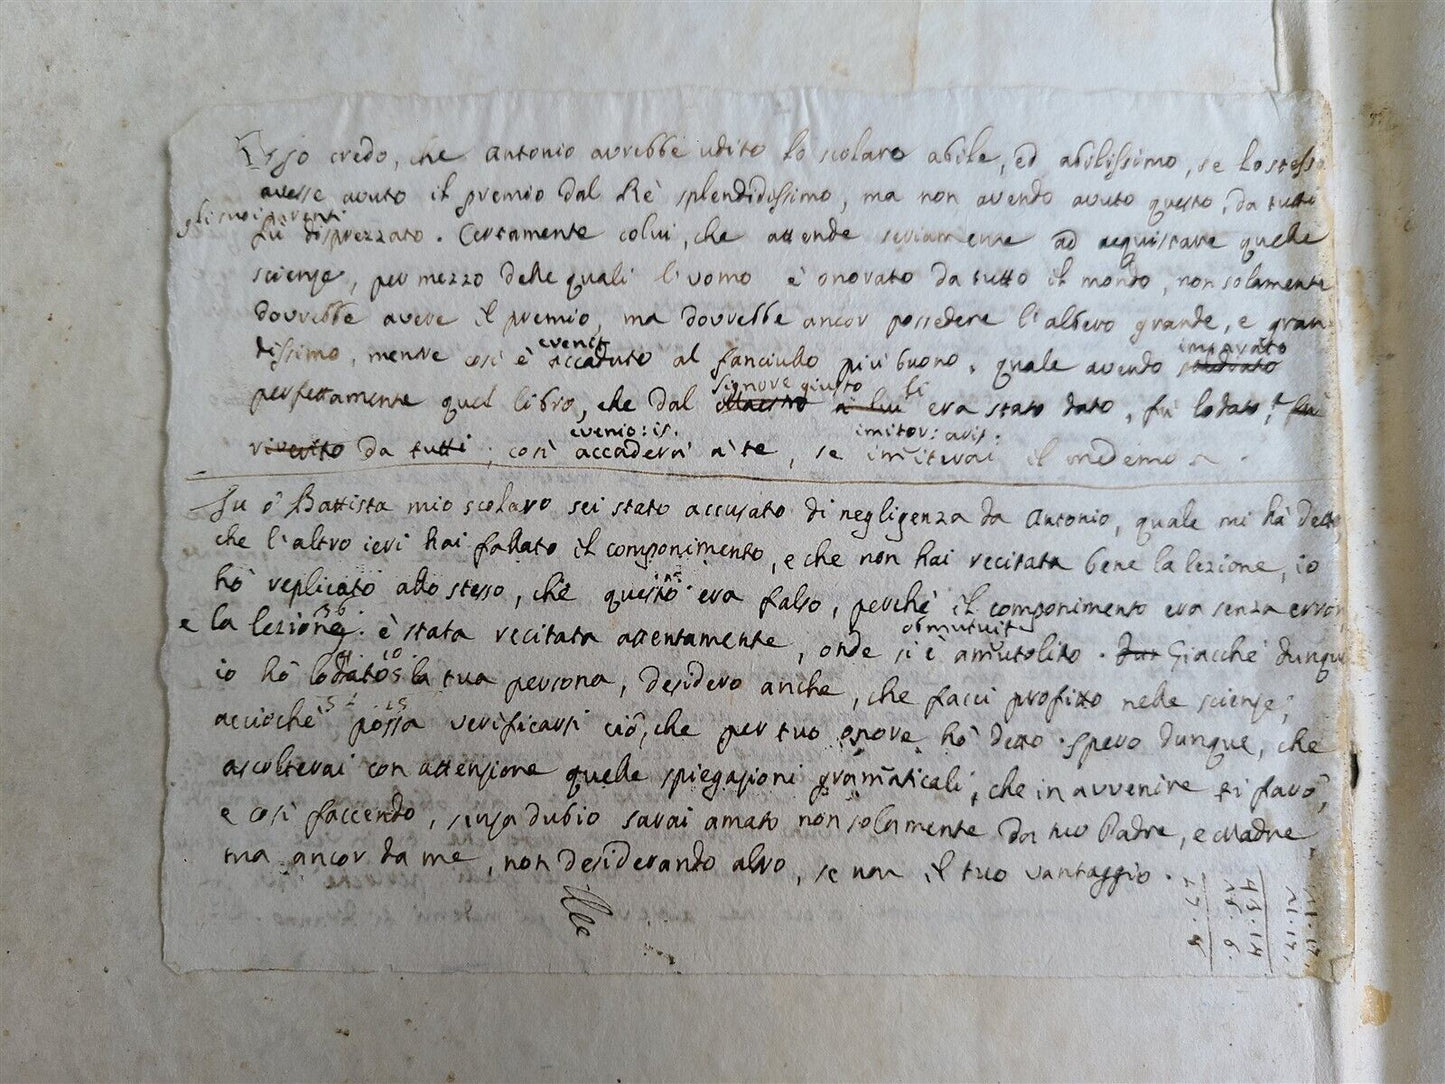 Esso credo, che Antonio avrebbe udito lo scolaro abile, ed abilissimo, se lo stesso
avesse avuto il premio dal Rè splendidissimo, ma non avendo avuto questo, da tutti
gli suoi parenti
fù disprezzato. Certamente colui, che attende seriamente ad acquistare quelle
scienze, per mezzo delle quali l'uomo è onorato da tutto il mondo, non solamente
dovrebbe avere il premio, ma dovrebbe ancor possedere l'albero grande, e gran-
evenit imparato
dissimo, mentre così è accaduto al fanciullo più buono, quale avendo studiato
signore giusto li
perfettamente quel libro, che dal Maestro a lui era stato dato, fù lodato, fù
evenio: is. imitor: aris:
riverito da tutti; così accaderà à te, se imiterai il medemo.
Tu ô Battista mio scolaro sei stato accusato di negligenza da Antonio, quale mi hà detto,
che l'altro ieri hai fallato il componimento, e che non hai recitata bene la lezione, io
hò replicato allo stesso, che questo era falso, perchè il componimento era senza errori,
36 obmutuit
e la lezione è stata recitata attentamente, onde si è amutolito. Giacchè dunque
io hò lodato la tua persona, desidero anche, che facci profitto nelle scienze,
15 15
acciochè possa verificarsi ciò, che per tuo onore hò detto. Spero dunque, che
ascolterai con attenzione quelle spiegazioni grammaticali, che in avvenire ti farò,
e così faccendo, senza dubio sarai amato non solamente da tuo Padre, e Madre,
ma ancor da me, non desiderando altro, se non il tuo vantaggio.
21.17.
21.17.
43.14
27.8